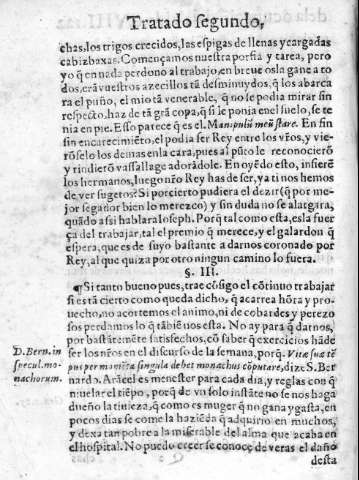 Tratado segundo,
chas, los trigos crecidos, las espigas de llenas y cargadas
cabizbaxas. Començamos nuestra porfia y tarea, pero
yo q̃ en nada perdono al trabajo, en breue os la gane a to
dos, erã vuestros azecillos tã desminuydos, q̃ los abarca
ra el puño, el mio tã venerable, q̃ no se podia mirar sin
respecto, haz de tã grã copa, q̃ si le ponia en el suelo, se te
nia en pie. Esso parece q̃ es el. Manipulũ meũ stare. En fin
sin encarecimiẽto, el podia ser Rey entre los vr̃os, y vie-
rõselo los demas en la cara, pues al pũto le reconocierõ
y rindierõ vassallage adorãdole. En oyẽdo esto, infierẽ
los hermanos, luego nr̃o Rey has de ser, ya ti nos hemos
de ver sugetos: Si por cierto pudiera el dezir (q̃ por me-
jor segador bien lo merezco) y sin duda no se alargara,
quãdo assi hablara Ioseph. Porq̃ tal como esta, es la fuer
ça del trabajar, tal el premio q̃ merece, y el galardon q̃
espera, que es de suyo bastante a darnos coronado por
Rey, al que quiza por otro ningun camino lo fuera.
§. III.
¶Si tanto bueno pues, trae cõsigo el cõtinuo trabajar
si està cierto como queda dicho, q̃ acarrea hõra y pro-
uecho, no acortemos el animo, ni de cobardes y perezo
sos perdamos lo q̃ tãbiẽ nos esta. No ay para q̃ darnos,
por bastãtemẽte satisfechos, cõ saber q̃ exercicios hãde
D. Bern. in
specul. mo-
nachorum.
ser los nr̃os en el discurso de la semana, porq̃. Vitæ suæ tẽ
pus per momẽta singula debet monachus cõputare, dize S. Ber
nardo. Arãcel es menester para cada dia, y reglas con q̃
niuelar el tiẽpo, porq̃ de vn solo instãte no se nos haga
dueño la tinieza, q̃ como es muger q̃ no gana y gasta, en
pocos dias se come la haziẽda q̃ adquirio en muchos,
y dexa tan pobre a la miserable del alma que acaba en
el hospital. No puedo creer se conoce de veras el daño
desta